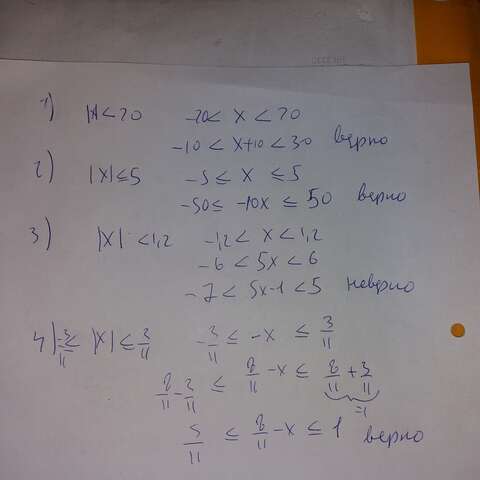 1) |x|<20 -20< x <20
-10 < x+10 <30 верно
2) |x|≤5 -5 ≤ x ≤5
-50≤ -10x ≤ 50 верно
3) |x| <1,2 -1,2 < x <1,2
-6 < 5x < 6
-7 < 5x-1 <5 неверно
4) |x| ≤ 3/11 -3/11 ≤ -x ≤ 3/11
8-3/11 ≤ 8/11 -x ≤ 8/11 + 3/11
=1
5/11 ≤ 8/11 -x ≤ 1 верно